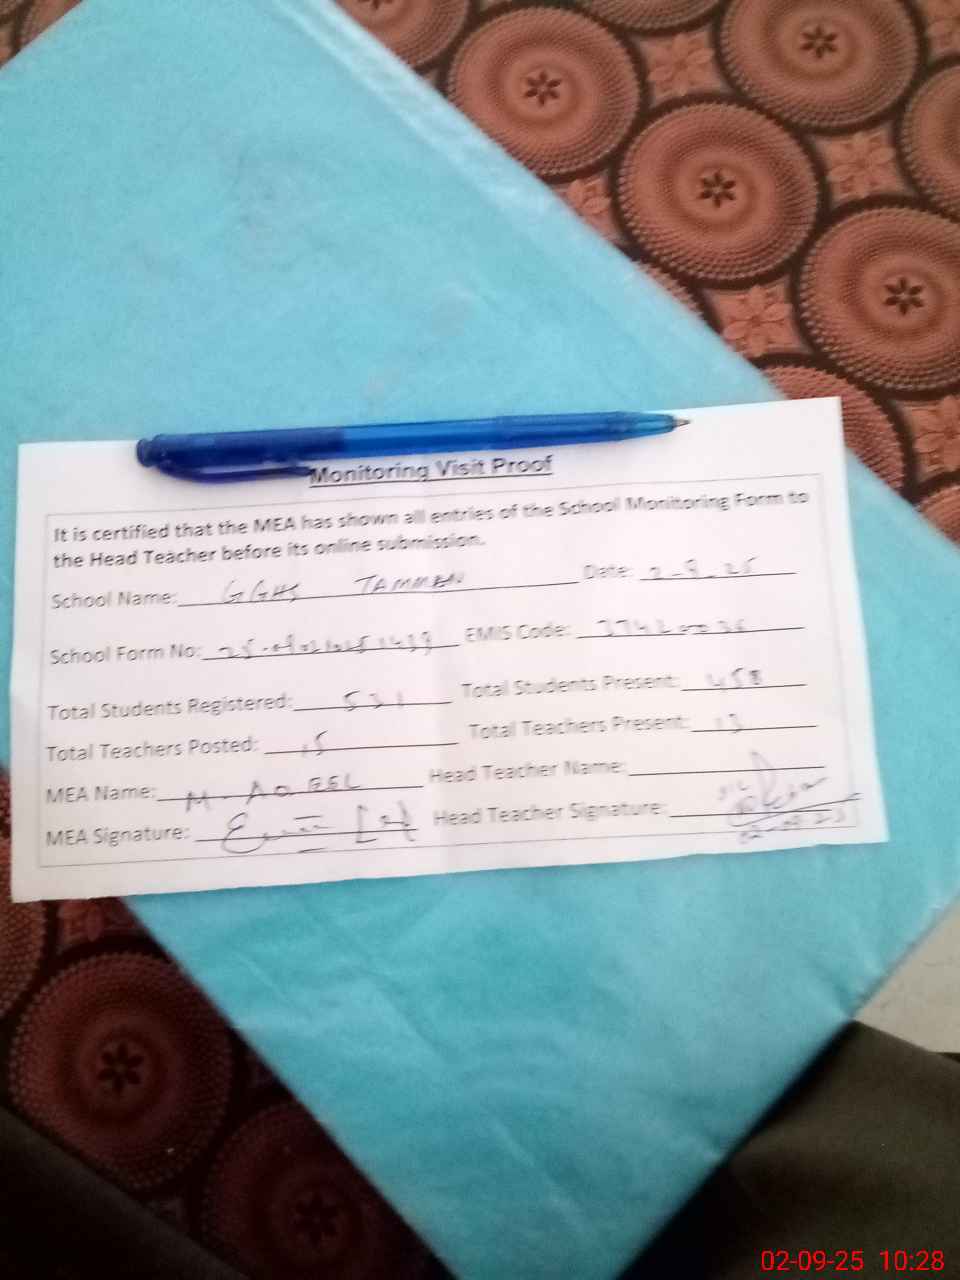 Monitoring Visit Proof
It is certified that the MEA has shown all entries of the School Monitoring Form to
the Head Teacher before its online submission.
School Name: GGHS TAMMAN Date: 2-9-25
School Form No: EMIS Code:
Total Students Registered: 531 Total Students Present: 458
Total Teachers Posted: 15 Total Teachers Present: 13
MEA Name: M. AQEEL Head Teacher Name:
MEA Signature: Head Teacher Signature:
02-09-25 10:28